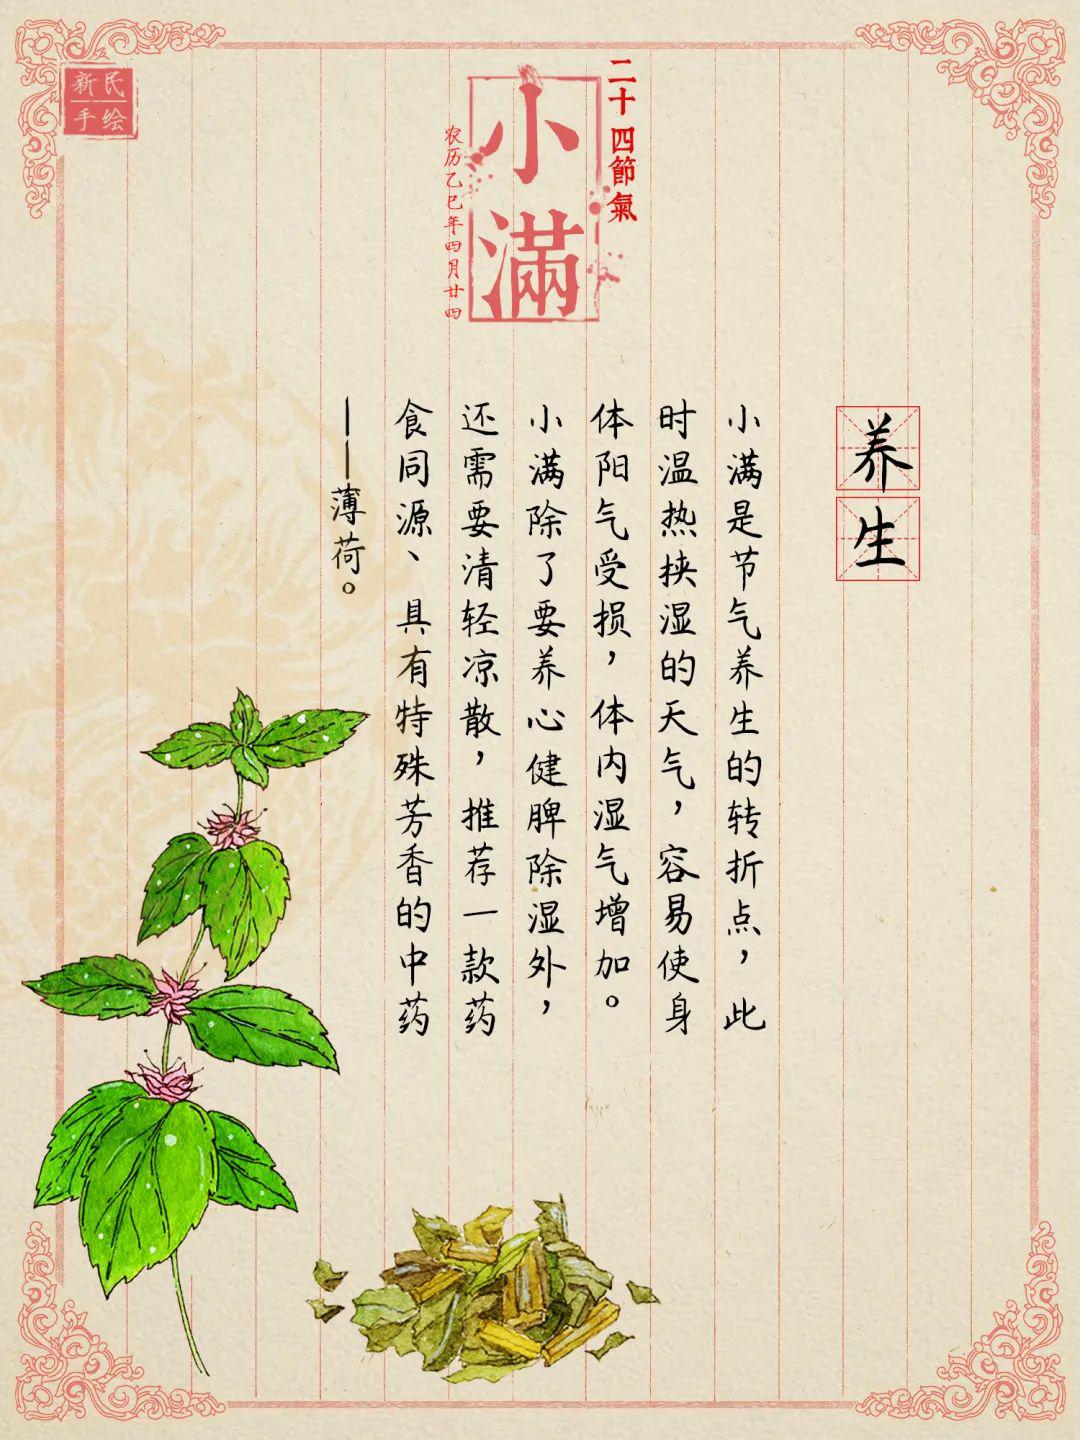 新民
手绘
二十四節氣
小滿
农历乙巳年四月廿四
养生
小满是节气养生的转折点，此
时温热挟湿的天气，容易使身
体阳气受损，体内湿气增加。
小满除了要养心健脾除湿外，
还需要清轻凉散，推荐一款药
食同源、具有特殊芳香的中药
——薄荷。